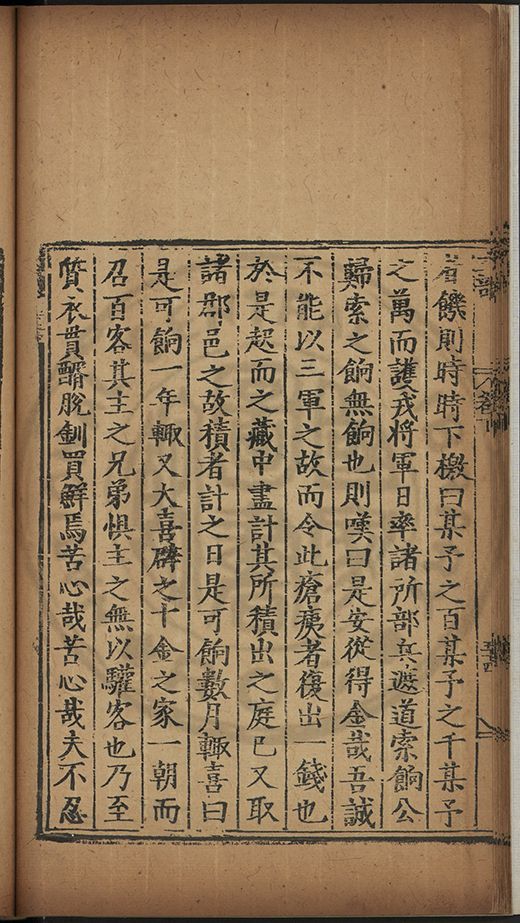 者饑則時時下檄曰某予之百某予之千某予
之萬而護戎將軍日率諸所部兵遮道索餉公
歸索之餉無餉也則嘆曰是安從得金哉吾誠
不能以三軍之故而令此瘡痍者復出一錢也
於是起而之藏中盡計其所積出之庭已又取
諸郡邑之故積者計之曰是可餉數月輙喜曰
是可餉一年輙又大喜礕之十金之家一朝而
召百客其主之兄弟惧主之無以驩客也乃至
質衣貰醑脫釧買鮮焉苦心哉苦心哉夫不忍